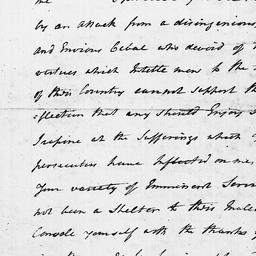 the
by an attack from a disingenious
and Envious Cabal who devoid of
virtues which Intitle men to the
of their Country cannot support the
flection that any should Enjoy
Irepine at the sufferings which
persecutors have Inflected on me
Your variety of Emminent Serv
not been a Shelter to their Male
Console yourself with the thanks